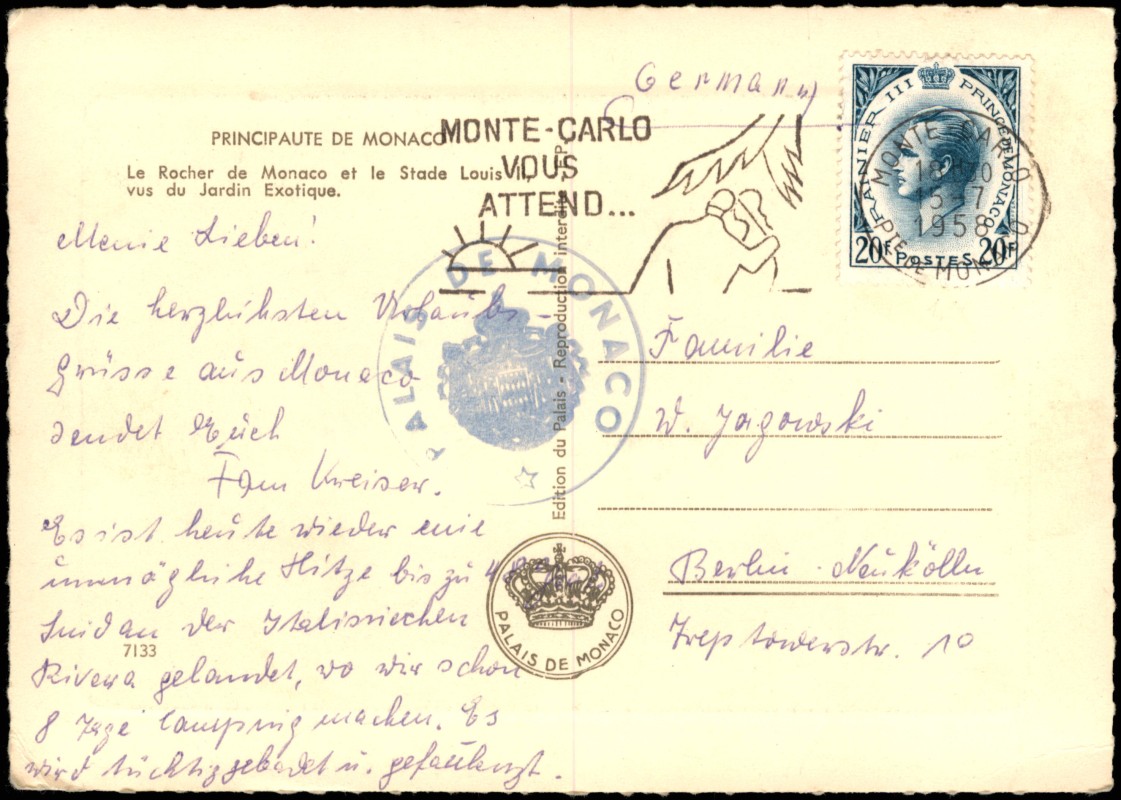 Germany
PRINCIPAUTE DE MONACO
Le Rocher de Monaco et le Stade Louis II,
vus du Jardin Exotique.
MONTE-CARLO
VOUS
ATTEND...
RAINIER III PRINCE DE MONACO
20F POSTES 20F
MONTE CARLO
18H
5-7
1958
PTE DE MONACO
Meine Lieben!
Die herzlichsten Urlaubs-
grüsse aus Monaco
sendet Euch
Fam Kreiser.
Es ist heute wieder eine
unmögliche Hitze bis zu
Sind an der Italienischen
Rivera gelandet, wo wir schon
8 Tage Camping machen. Es
wird tüchtig gebadet u. gefaulenzt.
7133
PALAIS DE MONACO
Edition du Palais - Reproduction interdite -
PALAIS DE MONACO
Familie
W. Jagowski
Berlin-Neukölln
Treptowerstr. 10